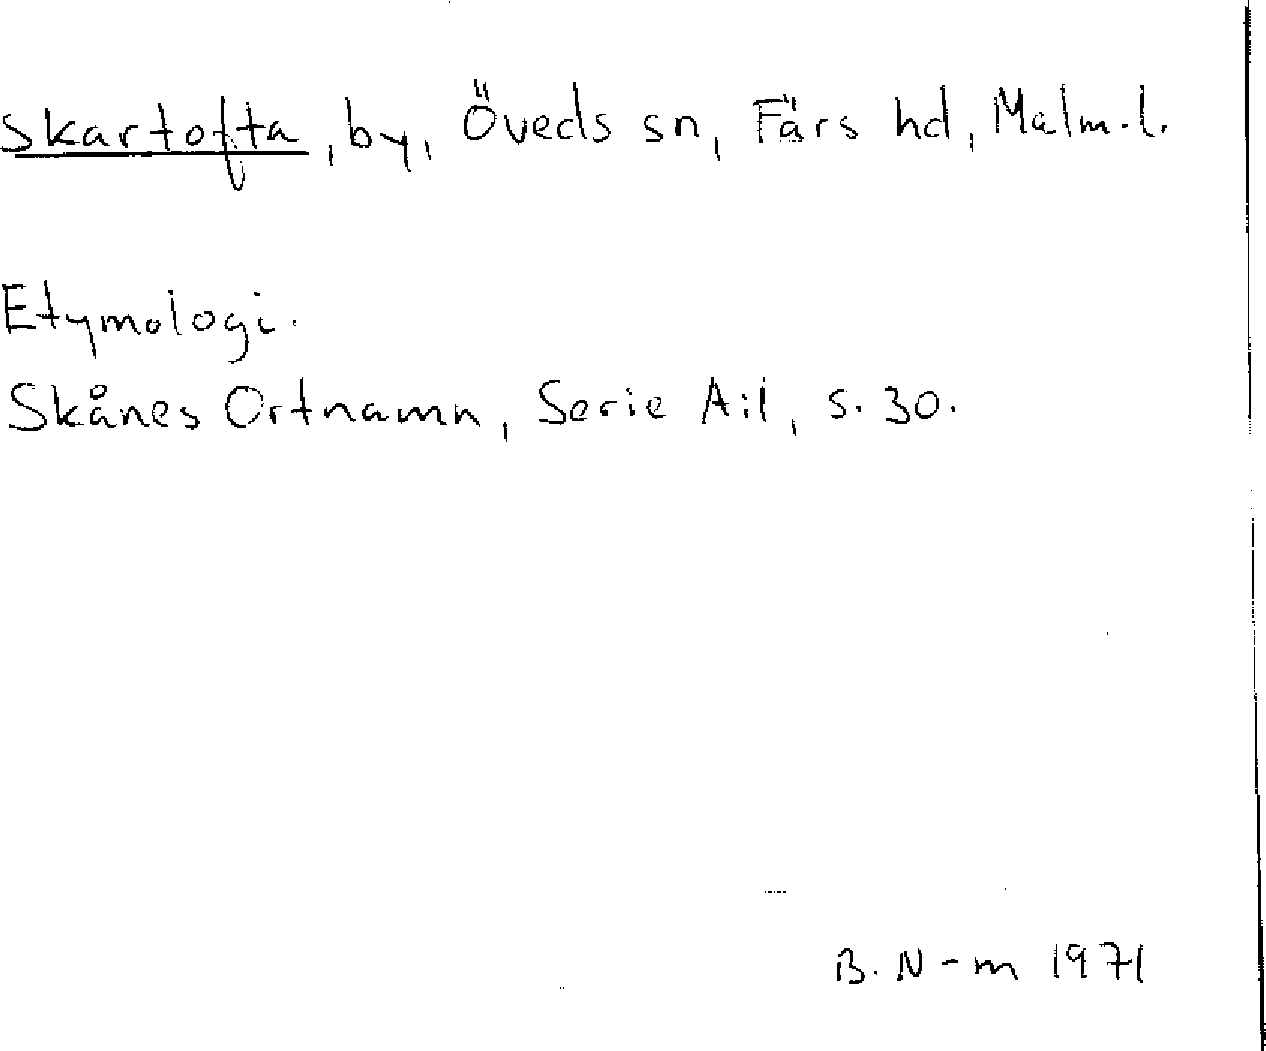 Skartofta, by, Öveds sn, Färs hd, Malm.l.
Etymologi.
Skånes Ortnamn, Serie A:1, s. 30.
B. N-m 1971